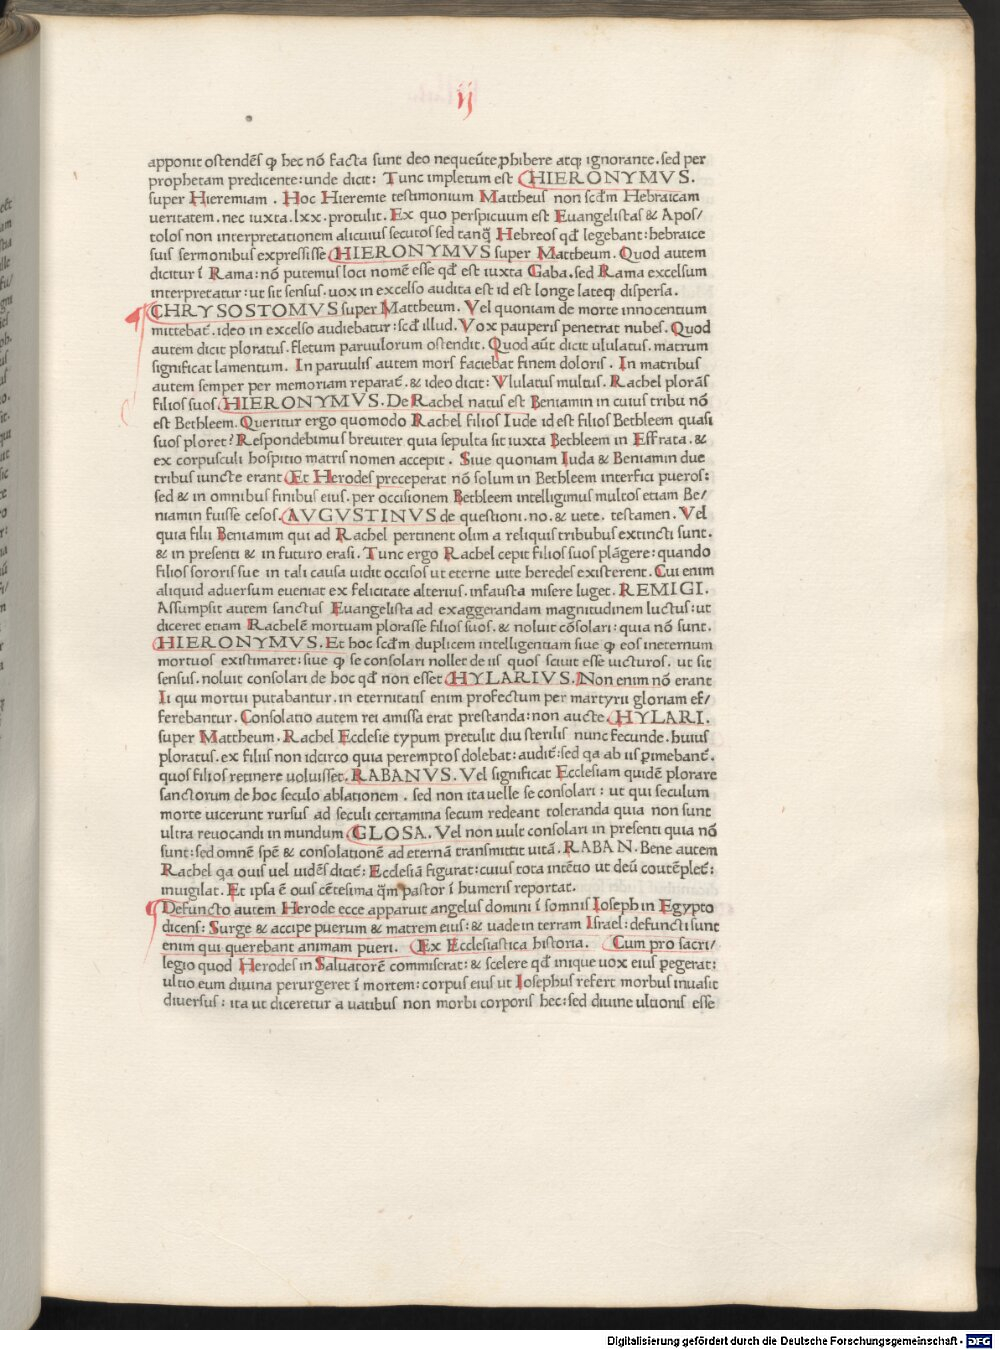 ij
apponit ostendēs ꝙ hec nō facta sunt deo nequeūte ꝓhibere atqꝫ ignorante. sed per
prophetam predicente: unde dicit: Tunc impletum est HIERONYMVS.
super Hieremiam. Hoc Hieremie testimonium Mattheus non scďm Hebraicam
ueritatem. nec iuxta. lxx. protulit. Ex quo perspicuum est Euangelistas & Apos/
tolos non interpretationem alicuius secutos sed tanꝗ̃ Hebreos qď legebant: hebraice
suis sermonibus expressisse HIERONYMVS super Mattheum. Quod autem
dicitur ī Rama: nō putemus loci nomē esse qď est iuxta Gaba. sed Rama excelsum
interpretatur: ut sit sensus. uox in excelso audita est id est longe lateqꝫ dispersa.
CHRYSOSTOMVS super Mattheum. Vel quoniam de morte innocentium
mittebat̄. ideo in excelso audiebatur: scďm illud. Vox pauperis penetrat nubes. Quod
autem dicit ploratus. fletum paruulorum ostendit. Quod aūt dicit ululatus. matrum
significat lamentum. In paruulis autem mors faciebat finem doloris. In matribus
autem semper per memoriam reparat̄. & ideo dicit: Vlulatus multus. Rachel plorās
filios suos. HIERONYMVS. De Rachel natus est Beniamin in cuius tribu nō
est Bethleem. Queritur ergo quomodo Rachel filios Iude id est filios Bethleem quasi
suos ploret? Respondebimus breuiter quia sepulta sit iuxta Bethleem in Effrata. &
ex corpusculi hospitio matris nomen accepit. Siue quoniam Iuda & Beniamin due
tribus iuncte erant Et Herodes preceperat nō solum in Bethleem interfici pueros:
sed & in omnibus finibus eius. per occisionem Bethleem intelligimus multos etiam Be/
niamin fuisse cesos. AVGVSTINVS de questioni. no. & uete. testamen. Vel
quia filii Beniamim qui ad Rachel pertinent olim a reliquis tribubus extincti sunt.
& in presenti & in futuro erasi. Tunc ergo Rachel cepit filios suos plāgere: quando
filios sororis sue in tali causa uidit occisos ut eterne uite heredes existerent. Cui enim
aliquid aduersum eueniat ex felicitate alterius. infausta misere luget. REMIGI.
Assumpsit autem sanctus Euangelista ad exaggerandam magnitudinem luctus: ut
diceret etiam Rachelē mortuam plorasse filios suos. & noluit cōsolari: quia nō sunt.
HIERONYMVS. Et hoc scďm duplicem intelligentiam siue ꝙ eos ineternum
mortuos existimaret: siue ꝙ se consolari nollet de iis quos sciuit esse uicturos. ut sit
sensus. noluit consolari de hoc qď non esset HYLARIVS. Non enim nō erant
Ii qui mortui putabantur. in eternitatis enim profectum per martyrii gloriam ef/
ferebantur. Consolatio autem rei amissa erat prestanda: non aucte. HYLARI.
super Mattheum. Rachel Ecclesie typum pretulit diu sterilis nunc fecunde. huius
ploratus. ex filiis non idcirco quia peremptos dolebat: audit̄: sed qa ab iis ꝑimebant̄.
quos filios retinere uoluisset. RABANVS. Vel significat Ecclesiam quidē plorare
sanctorum de hoc seculo ablationem. sed non ita uelle se consolari: ut qui seculum
morte uicerunt rursus ad seculi certamina secum redeant toleranda quia non sunt
ultra reuocandi in mundum GLOSA. Vel non uult consolari in presenti quia nō
sunt: sed omnē spē & consolationē ad eternā transmittit uitā. RABAN. Bene autem
Rachel qa ouis uel uidēs dicit̄: Ecclesiā figurat: cuius tota intētio ut deū contēplet̄:
inuigilat. Et ipsa ē ouis cētesima ꝗ̃m pastor ī humeris reportat.
Defuncto autem Herode ecce apparuit angelus domini ī somnis Ioseph in Egypto
dicens: Surge & accipe puerum & matrem eius: & uade in terram Israel: defuncti sunt
enim qui querebant animam pueri. Ex Ecclesiastica historia. Cum pro sacri/
legio quod Herodes in Saluatorē commiserat: & scelere qď inique uox eius ꝑegerat:
ultio eum diuina perurgeret ī mortem: corpus eius ut Iosephus refert morbus inuasit
diuersus: ita ut diceretur a uatibus non morbi corporis hec: sed diuine ultionis esse
Digitalisierung gefördert durch die Deutsche Forschungsgemeinschaft - DFG